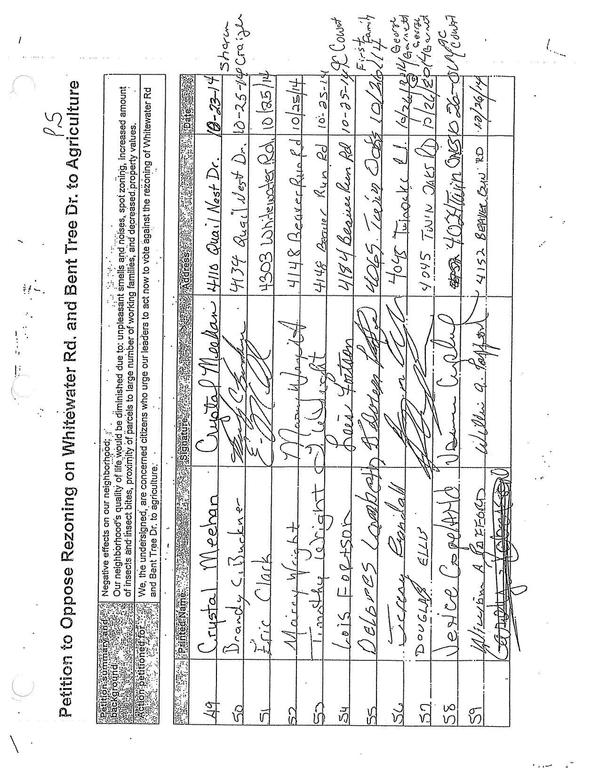 P.5
Petition to Oppose Rezoning on Whitewater Rd. and Bent Tree Dr. to Agriculture
Petition summary and background: Negative effects on our neighborhood:
Our neighborhood's quality of life would be diminished due to: unpleasant smells and noises, spot zoning, increased amount
of insects and insect bites, proximity of parcels to large number of working families, and decreased property values.
Action petitioned for: We, the undersigned, are concerned citizens who urge our leaders to act now to vote against the rezoning of Whitewater Rd
and Bent Tree Dr. to agriculture.
Printed Name Signature Address Date
49 Crystal Meehan Crystal Meehan 4110 Quail Nest Dr. 10-23-14
50 Brandy C. Buckner 4134 Quail Nest Dr. 10-25-14 Sharon Craigler
51 Eric Clark 4303 Whitewater Rd. 10/25/14
52 Marcy Wright Marcy Wright 4148 Beaver Run Rd 10/25/14
53 Timothy Wright 4148 Beaver Run Rd 10-25-14
54 Lois Fortson Lois Fortson 4184 Beaver Run Rd 10-25-14 Court
55 Delores 4065 Twin Oaks 10/26/14 First Family
56 Jeremy 4045 10/26/2014 George Garnett
57 Douglas Ellis 4045 Twin Oaks Rd 10/26/2014 George Garnett
58 Copeland 4024 Twin Oaks 10-26-14 Court
59 William A Pafford William A. Pafford 4152 Beaver Run Rd 10/26/14